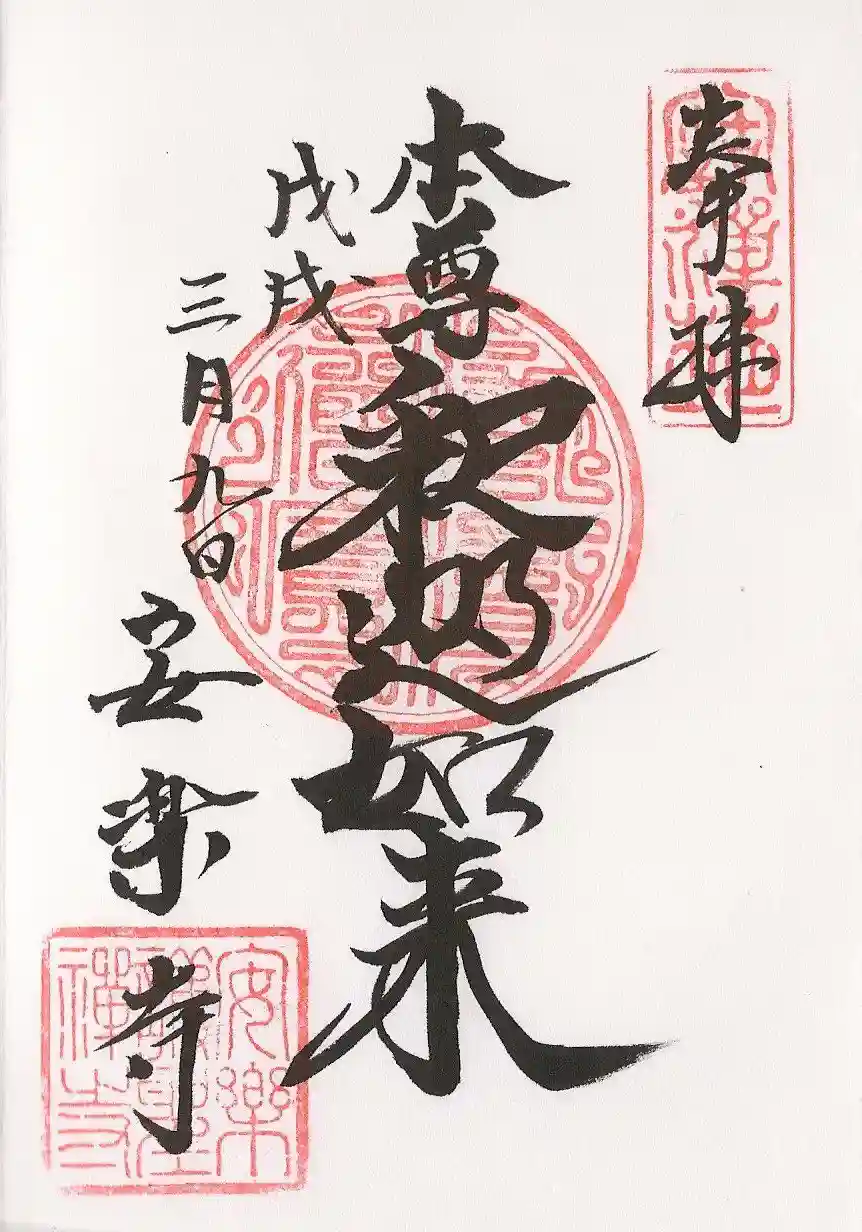 奉拝
本尊釈迦如来
戊戌
三月九日
安楽寺